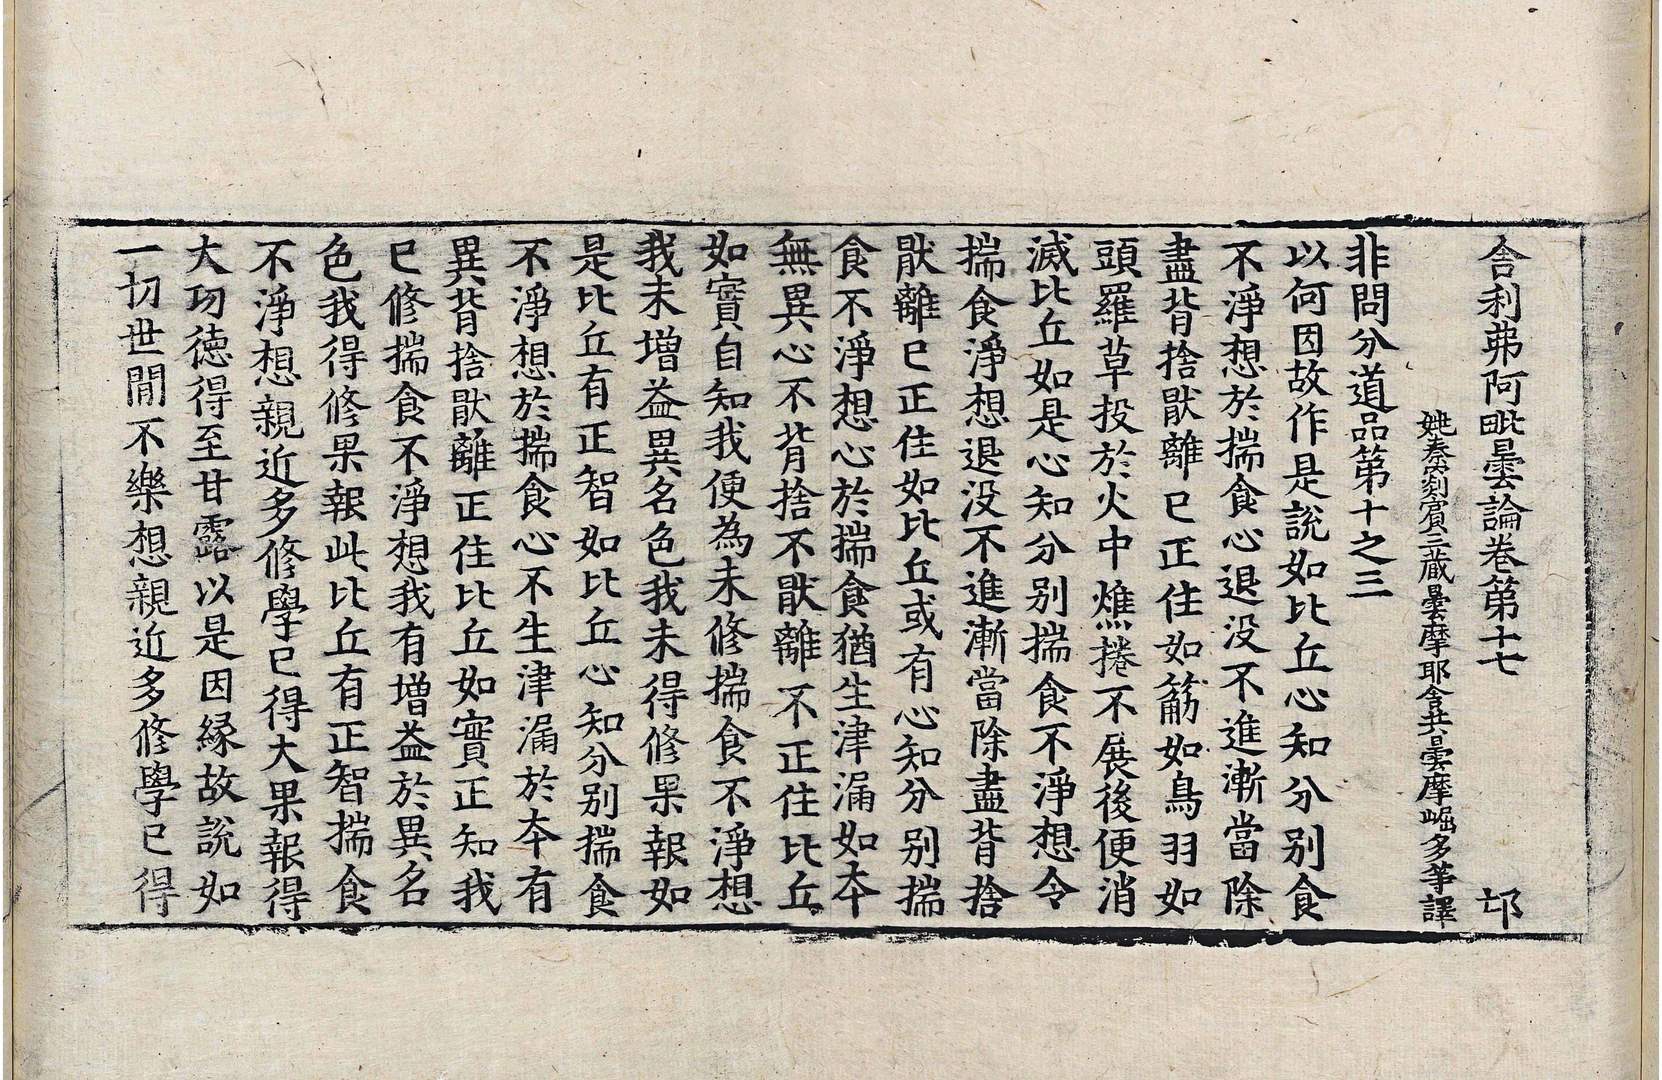 舎利弗阿毗曇論卷第十七 邙
姚秦罽賓三藏曇摩耶舍共曇摩崛多等譯
非問分道品第十之三
以何因故作是說如比丘心知分別食
不淨想於揣食心退没不進漸當除
盡背捨猒離已正住如筋如鳥羽如
頭羅草投於火中燋捲不展後便消
滅比丘如是心知分別揣食不淨想令
揣食淨想退没不進漸當除盡背捨
猒離已正住如比丘或有心知分別揣
食不淨想心於揣食猶生津漏如本
無異心不背捨不猒離不正住比丘
如實自知我便為未修揣食不淨想
我未增益異名色我未得修果報如
是比丘有正智如比丘心知分別揣食
不淨想於揣食心不生津漏於本有
異背捨猒離正住比丘如實正知我
已修揣食不淨想我有增益於異名
色我得修果報此比丘有正智揣食
不淨想親近多修學已得大果報得
大功徳得至甘露以是因縁故說如
一切世間不樂想親近多修學已得